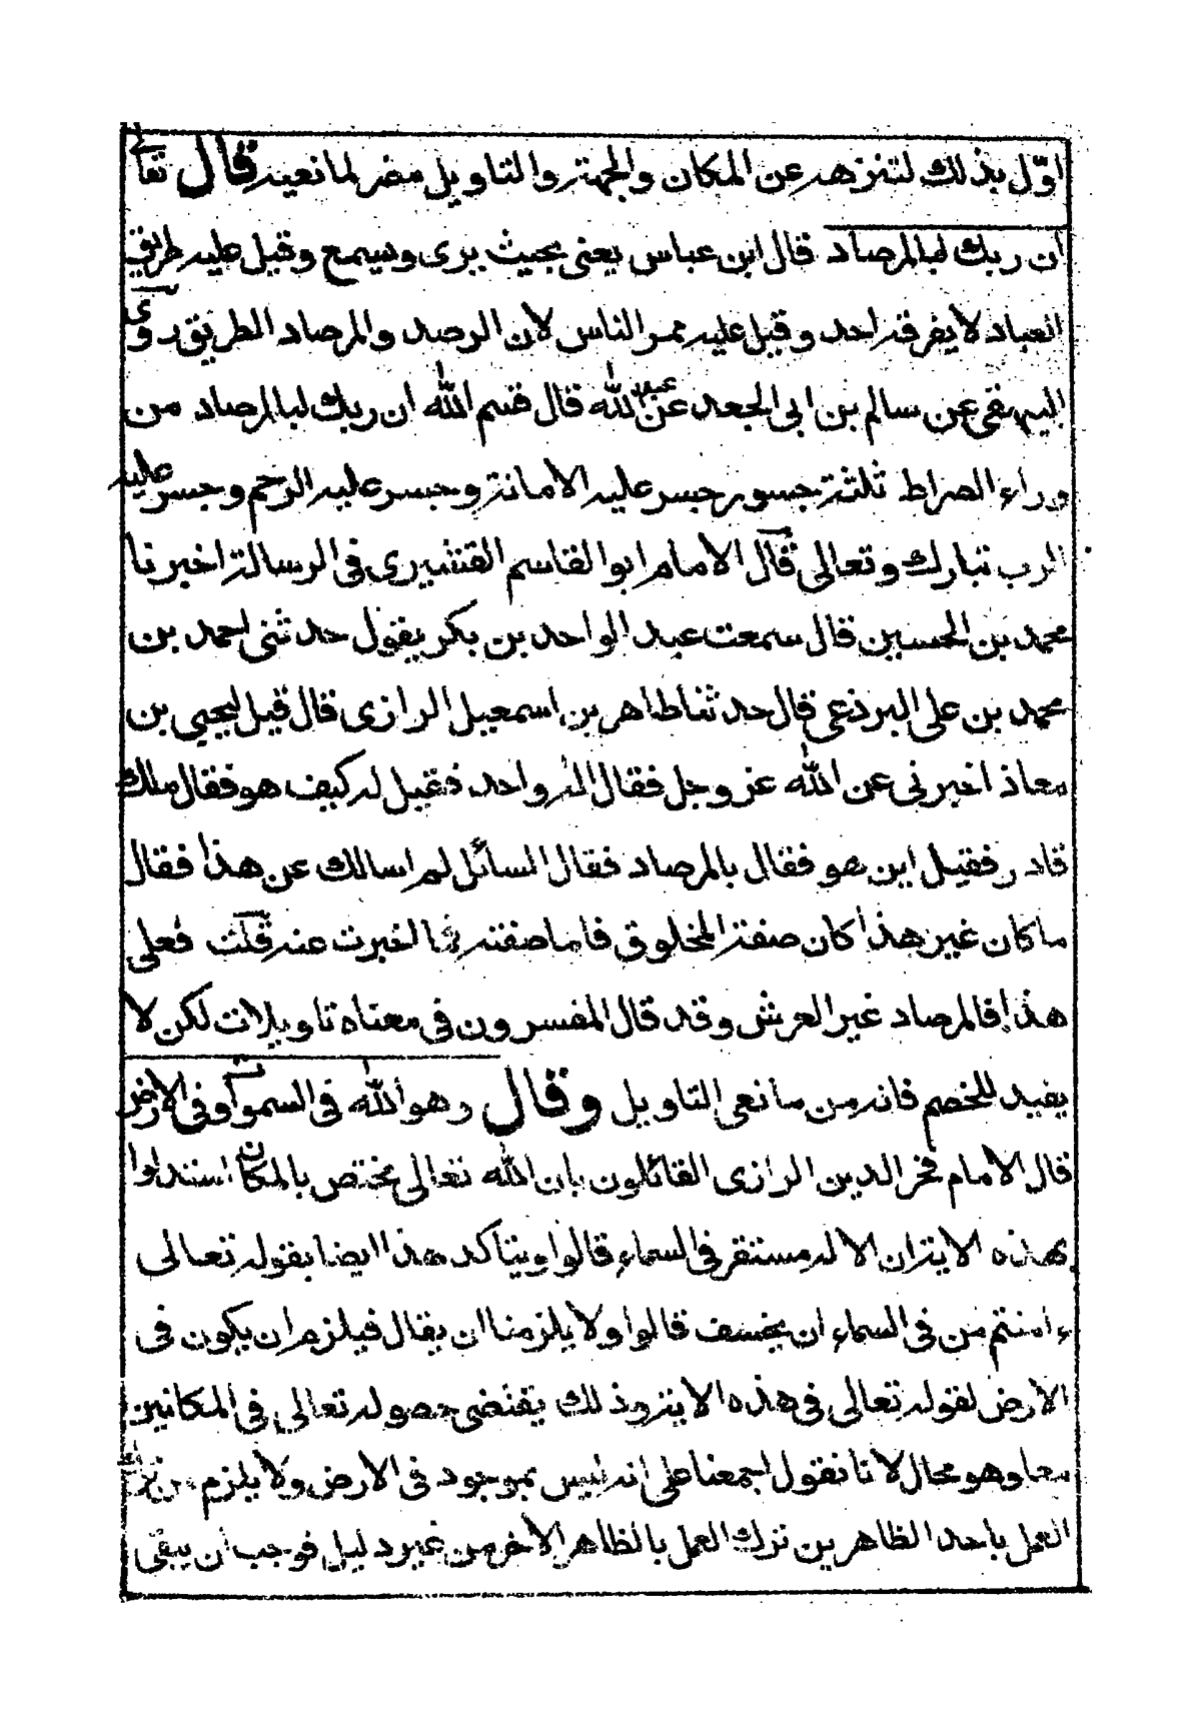 اوّل بذلك لتنزهه عن المكان والجهة والتاويل مضر لمانعيه قال تعالى
ان ربك لبالمرصاد قال ابن عباس يعنى بحيث يرى ويسمع وقيل عليه طريق
العباد لا يفوقه احد وقيل عليه ممر الناس لان الرصد والمرصاد الطريق روى
البيهقى عن سالم بن ابى الجعد عن عبد الله قال قسم الله ان ربك لبالمرصاد من
وراء الصراط ثلثة جسور جسر عليه الامانة وجسر عليه الرحم وجسر عليه
الرب تبارك وتعالى قال الامام ابو القاسم القشيرى فى الرسالة اخبرنا
محمد بن الحسين قال سمعت عبد الواحد بن بكر يقول حدثنى احمد بن
محمد بن على البرذعى قال حدثنا طاهر بن اسمعيل الرازى قال قيل ليحيى بن
معاذ اخبرنى عن الله عز وجل فقال اله واحد فقيل له كيف هو فقال ملك
قادر فقيل اين هو فقال بالمرصاد فقال السائل لم اسالك عن هذا فقال
ما كان غير هذا كان صفة المخلوق فاما صفته فما اخبرت عنه قلت فعلى
هذا فالمرصاد غير العرش وقد قال المفسرون فى معناه تاويلات لكن لا
يفيد للخصم فانه من مانعى التاويل وقال وهو الله فى السموات وفى الارض
قال الامام فخر الدين الرازى القائلون بان الله تعالى مختص بالمكان استدلوا
بهذه الاية ان الاله مستقر فى السماء قالوا ويتاكد هذا ايضا بقوله تعالى
ءامنتم من فى السماء ان يخسف قالوا ولا يلزمنا ان يقال فيلزم ان يكون فى
الارض لقوله تعالى فى هذه الاية وذلك يقتضى حصوله تعالى فى المكانين
معا وهو محال لانا نقول اجمعنا على انه ليس بموجود فى الارض ولا يلزم من
العمل باحد الظاهرين ترك العمل بالظاهر الاخر من غير دليل فوجب ان يبقى